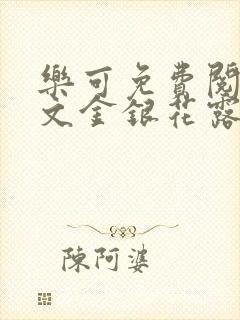 樂可免費閱
文金銀花露
陳阿婆